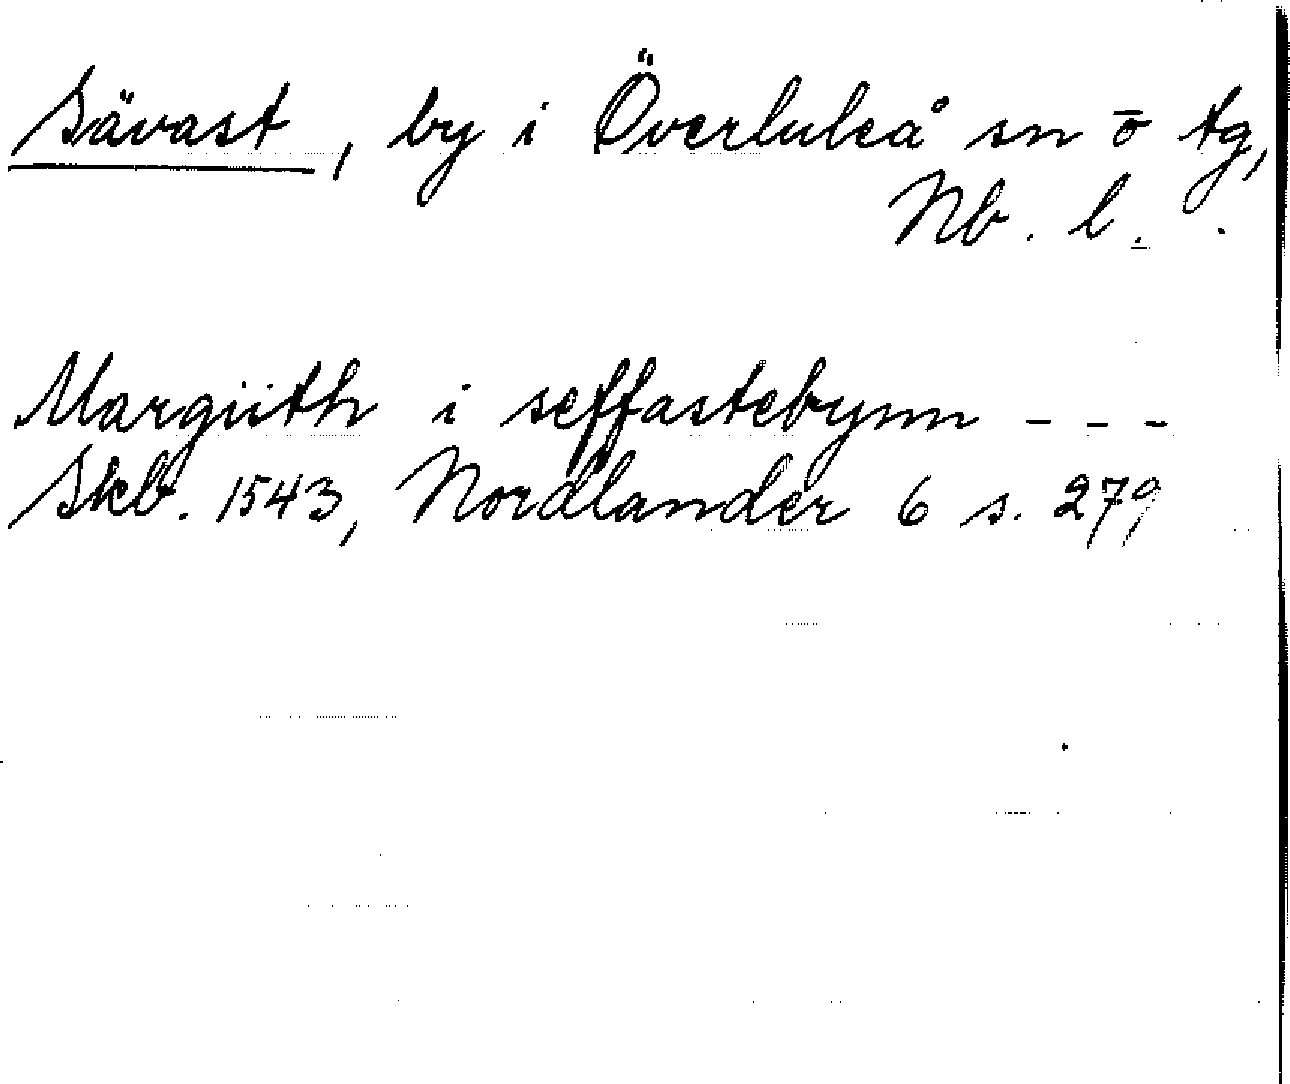 Sävast, by i Överluleå sn o tg,
Nb. l.
Margiith i seffastebynn - - -
Skb. 1543, Nordlander 6 s. 279